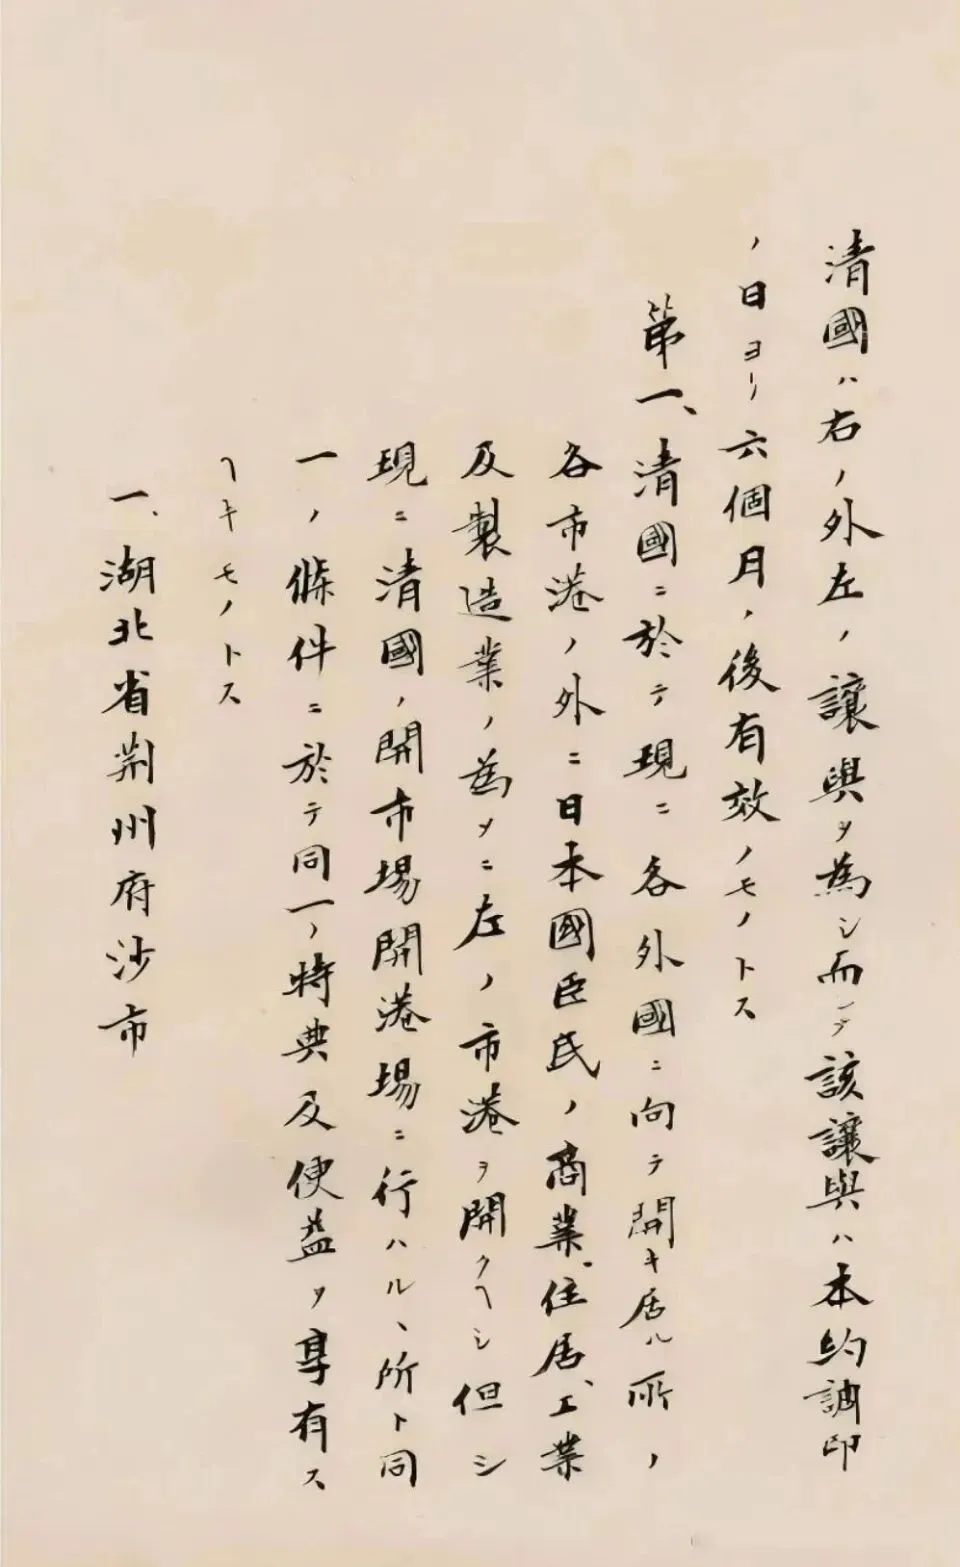 清國ハ右ノ外左ノ讓與ヲ為シ而シテ該讓與ハ本約調印
ノ日ヨリ六個月ノ後有效ノモノトス
第一、清國ニ於テ現ニ各外國ニ向テ開キ居ル所ノ
各市港ノ外ニ日本國臣民ノ商業、住居、工業
及製造業ノ為メニ左ノ市港ヲ開クヘシ但シ
現ニ清國ノ開市場開港場ニ行ハルヽ所ト同
一ノ條件ニ於テ同一ノ特典及便益ヲ享有ス
ヘキモノトス
一、湖北省荊州府沙市